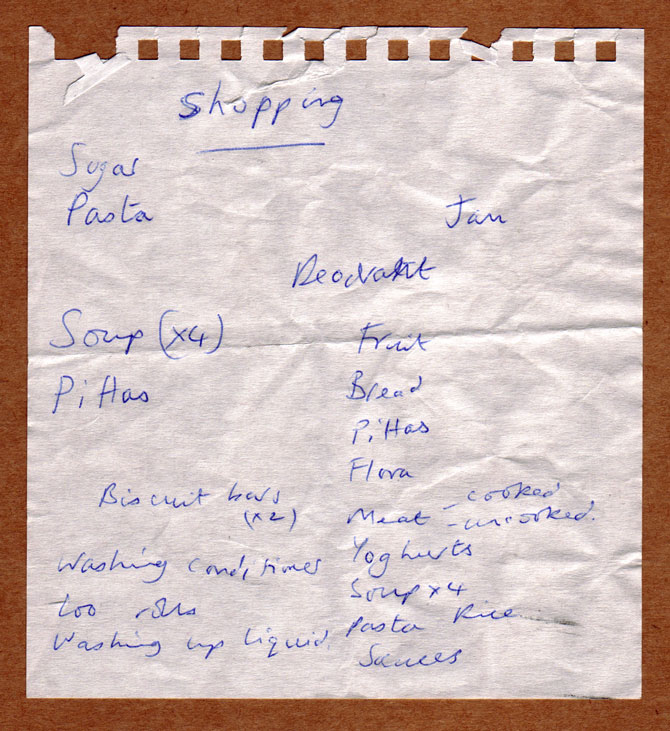 Shopping
Sugar
Pasta
Jam
Soup (x4)
Pittas
Biscuit bars
(x2)
Washing conditioner
Loo rolls
Washing up liquid
Fruit
Bread
Pittas
Flora
Meat - cooked
- uncooked.
Yoghurts
Soup x4
Pasta Rice
Sauces